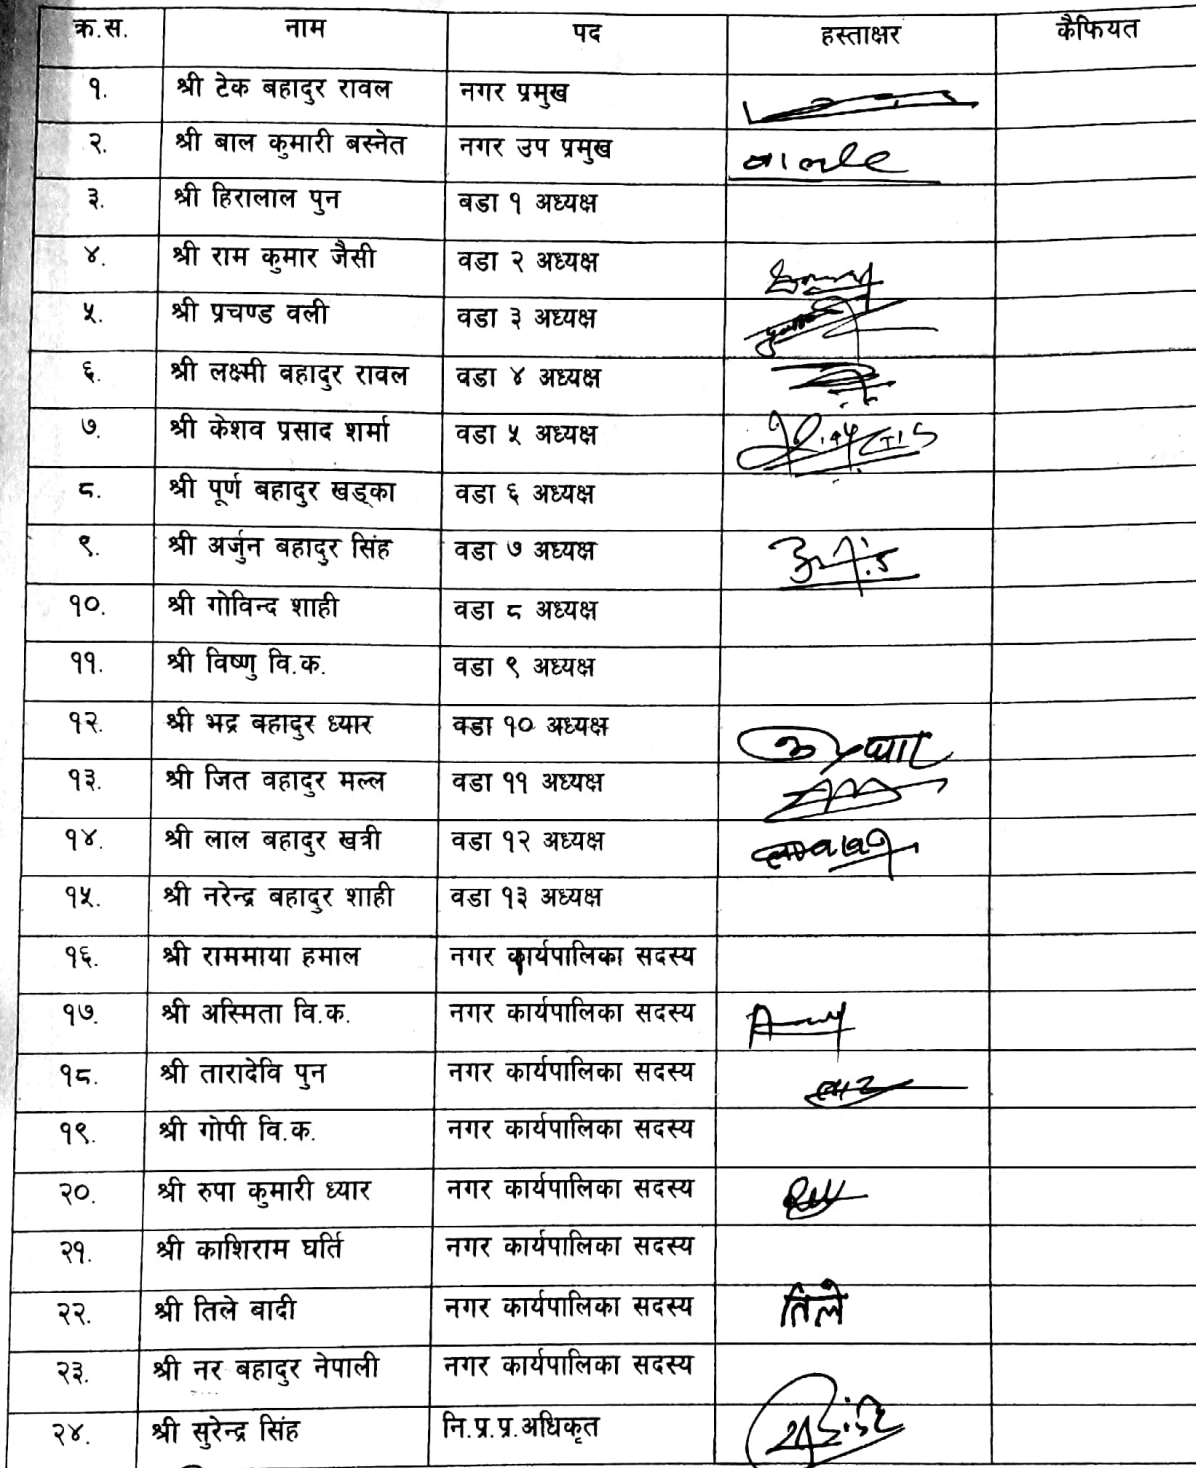 क्र.स. नाम पद हस्ताक्षर कैफियत
१. श्री टेक बहादुर रावल नगर प्रमुख
२. श्री बाल कुमारी बस्नेत नगर उप प्रमुख
३. श्री हिरालाल पुन वडा १ अध्यक्ष
४. श्री राम कुमार जैसी वडा २ अध्यक्ष
५. श्री प्रचण्ड वली वडा ३ अध्यक्ष
६. श्री लक्ष्मी बहादुर रावल वडा ४ अध्यक्ष
७. श्री केशव प्रसाद शर्मा वडा ५ अध्यक्ष
८. श्री पूर्ण बहादुर खड्का वडा ६ अध्यक्ष
९. श्री अर्जुन बहादुर सिंह वडा ७ अध्यक्ष
१०. श्री गोविन्द शाही वडा ८ अध्यक्ष
११. श्री विष्णु वि.क. वडा ९ अध्यक्ष
१२. श्री भद्र बहादुर ध्यार वडा १० अध्यक्ष
१३. श्री जित वहादुर मल्ल वडा ११ अध्यक्ष
१४. श्री लाल बहादुर खत्री वडा १२ अध्यक्ष
१५. श्री नरेन्द्र बहादुर शाही वडा १३ अध्यक्ष
१६. श्री राममाया हमाल नगर कार्यपालिका सदस्य
१७. श्री अस्मिता वि.क. नगर कार्यपालिका सदस्य
१८. श्री तारादेवि पुन नगर कार्यपालिका सदस्य
१९. श्री गोपी वि.क. नगर कार्यपालिका सदस्य
२०. श्री रुपा कुमारी ध्यार नगर कार्यपालिका सदस्य
२१. श्री काशिराम घर्ति नगर कार्यपालिका सदस्य
२२. श्री तिले बादी नगर कार्यपालिका सदस्य तिले
२३. श्री नर बहादुर नेपाली नगर कार्यपालिका सदस्य
२४. श्री सुरेन्द्र सिंह नि.प्र.प्र.अधिकृत